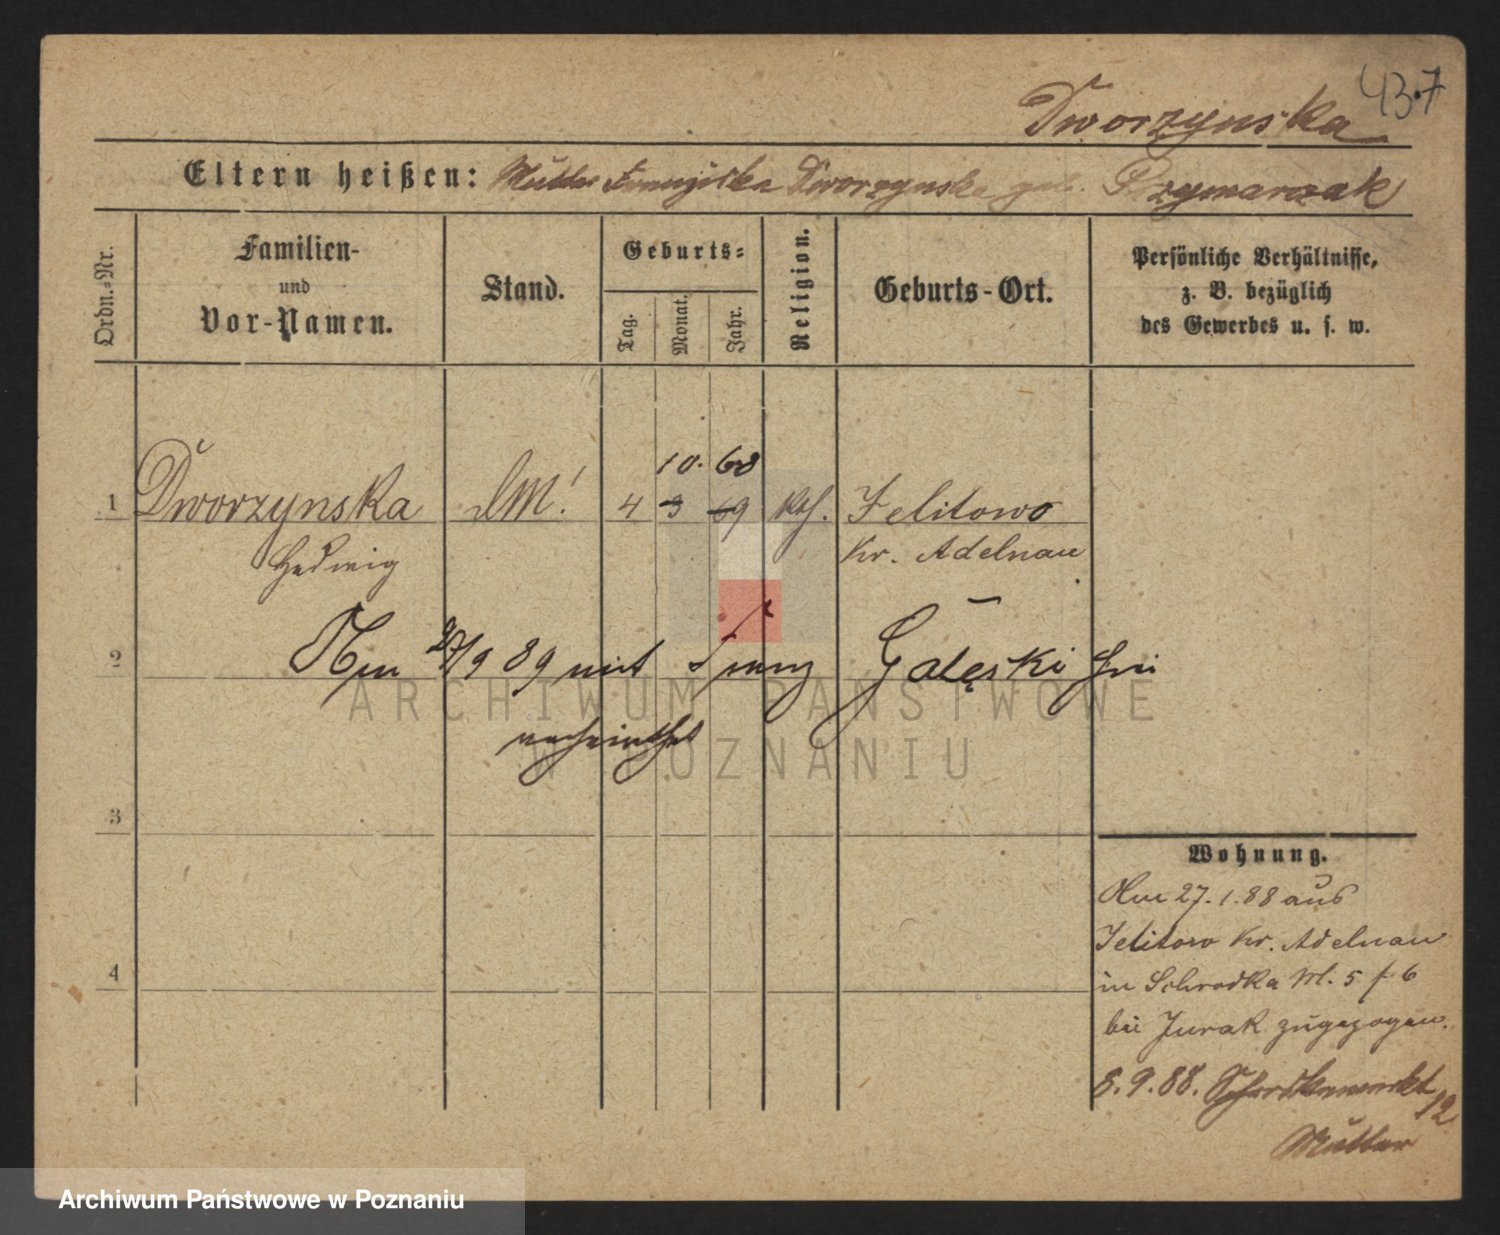 43.7
Dworzynska
Eltern heißen: Mutter Franziska Dworzynska geb. Szymarczak
Ordn.=Nr.
Familien-
und
Vor-Namen.
Stand.
Geburts=
Tag.
Monat.
Jahr.
Religion.
Geburts-Ort.
Persönliche Verhältnisse,
z. B. bezüglich
des Gewerbes u. s. w.
10. 68
1 Dworzynska 4 3 69 kth. Jelitowo
Hedwig Kr. Adelnau
2 Am 27/9 89 mit Franz Gałęski
verheirathet
3
4
Wohnung.
Am 27. 1. 88 aus
Jelitowo Kr. Adelnau
in Schrodka M. 5
bei Jurak zugezogen.
8. 9. 88. Schrodkamarkt 12
Mutter
ARCHIWUM PAŃSTWOWE
W POZNANIU
Archiwum Państwowe w Poznaniu